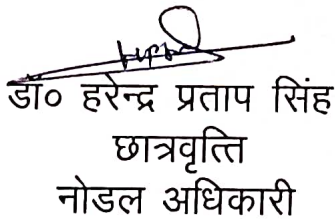 डा० हरेन्द्र प्रताप सिंह
छात्रवृत्ति
नोडल अधिकारी